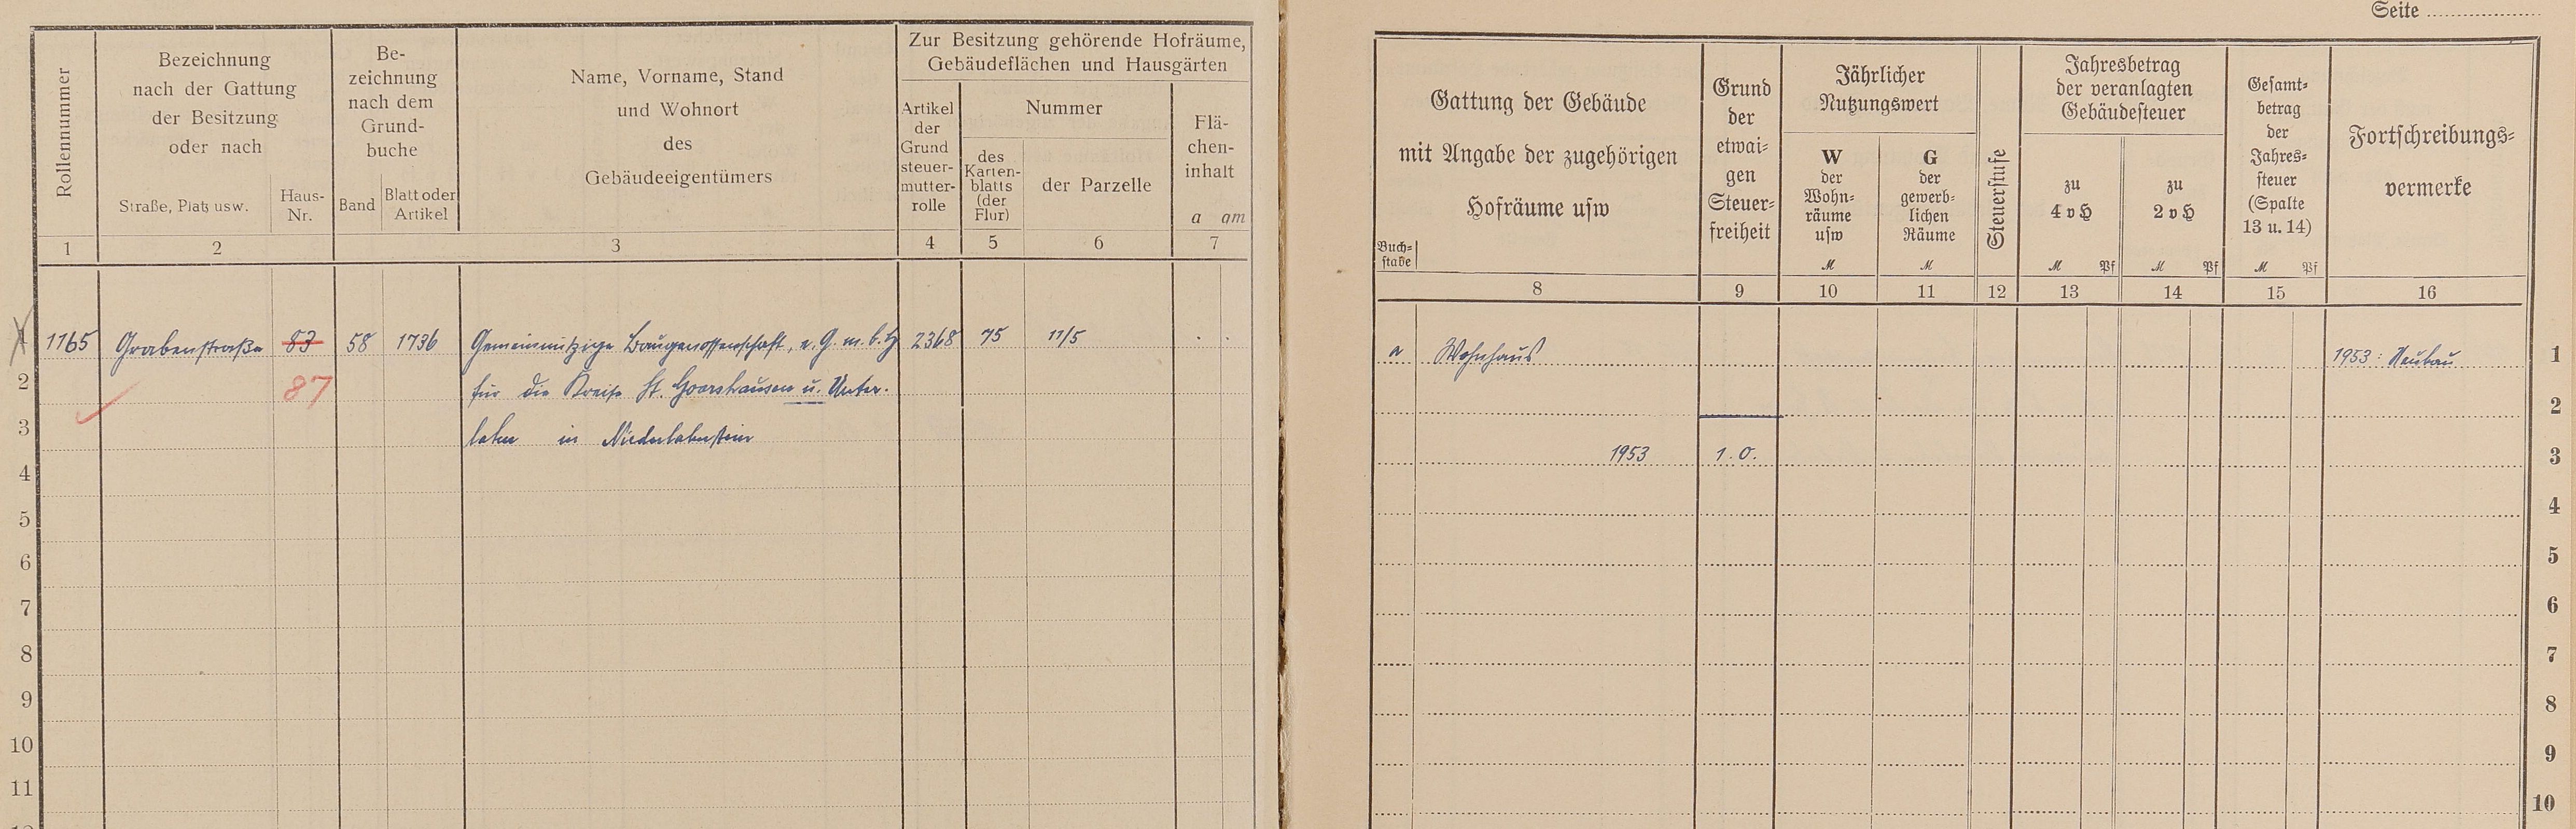 Seite
Rollennummer
Bezeichnung
nach der Gattung
der Besitzung
oder nach
Straße, Platz usw.
Haus-
Nr.
Be-
zeichnung
nach dem
Grund-
buche
Band
Blatt oder
Artikel
Name, Vorname, Stand
und Wohnort
des
Gebäudeeigentümers
Zur Besitzung gehörende Hofräume,
Gebäudeflächen und Hausgärten
Artikel
der
Grund
steuer-
mutter-
rolle
Nummer
des
Karten-
blatts
(der
Flur)
der Parzelle
Flä-
chen-
inhalt
a qm
1 2 3 4 5 6 7
1765 Grabenstraße 83 58 1736 Gemeinnützige Baugenossenschaft, e. G. m. b. H 2368 75 11/5
2 87 für die Kreise St. Goarshausen u. Unter-
3 lahn in Niederlahnstein
4
5
6
7
8
9
10
11
Gattung der Gebäude
mit Angabe der zugehörigen
Hofräume usw
Buch-
stabe
Grund
der
etwai-
gen
Steuer-
freiheit
Jährlicher
Nutzungswert
W
der
Wohn-
räume
usw
M
G
der
gewerb-
lichen
Räume
M
Steuerstufe
Jahresbetrag
der veranlagten
Gebäudesteuer
zu
4 v H
M Pf
zu
2 v H
M Pf
Gesamt-
betrag
der
Jahres-
steuer
(Spalte
13 u. 14)
M Pf
Fortschreibungs-
vermerke
8 9 10 11 12 13 14 15 16
a Wohnhaus 1953: Neubau 1
2
1953 1. O. 3
4
5
6
7
8
9
10